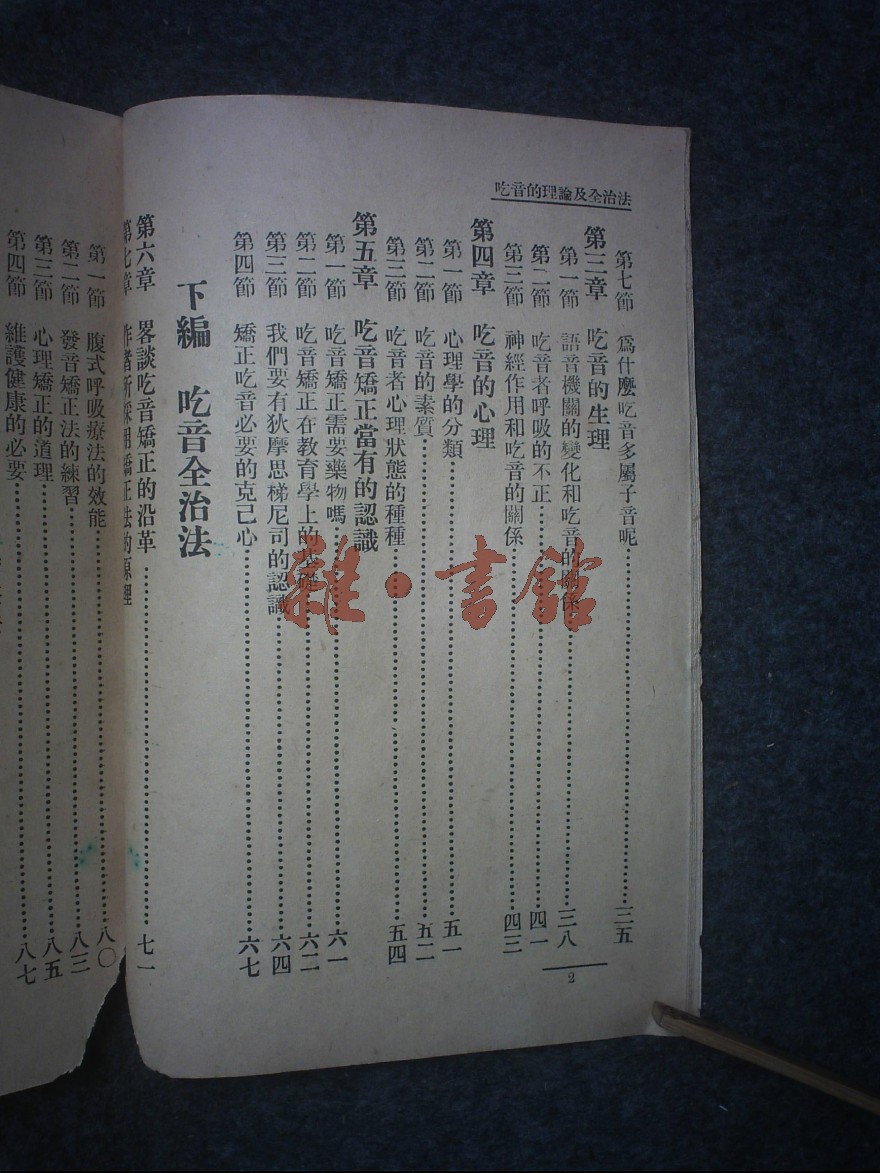 吃音的理論及全治法
第七節 爲什麽吃音多屬子音呢 三五
第三章 吃音的生理
第一節 語音機關的變化和吃音的關係 三八
第二節 吃音者呼吸的不正 四一
第三節 神經作用和吃音的關係 四三
第四章 吃音的心理
第一節 心理學的分類 五一
第二節 吃音的素質 五二
第三節 吃音者心理狀態的種種 五四
第五章 吃音矯正當有的認識
第一節 吃音矯正需要藥物嗎 六一
第二節 吃音矯正在教育學上的基礎 六二
第三節 我們要有狄摩思梯尼司的認識 六四
第四節 矯正吃音必要的克己心 六七
下編 吃音全治法
第六章 畧談吃音矯正的沿革 七一
第七章 作者所採用矯正法的原理
第一節 腹式呼吸療法的效能 八〇
第二節 發音矯正法的練習 八三
第三節 心理矯正的道理 八五
第四節 維護健康的必要 八七
2
雜·書館